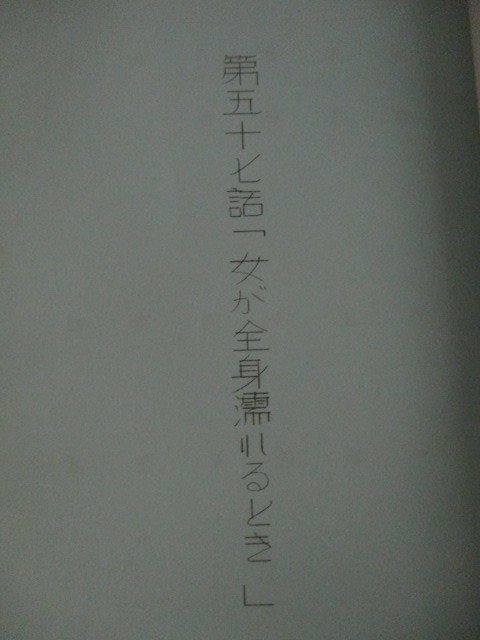 第五十七話「女が全身濡れるとき」